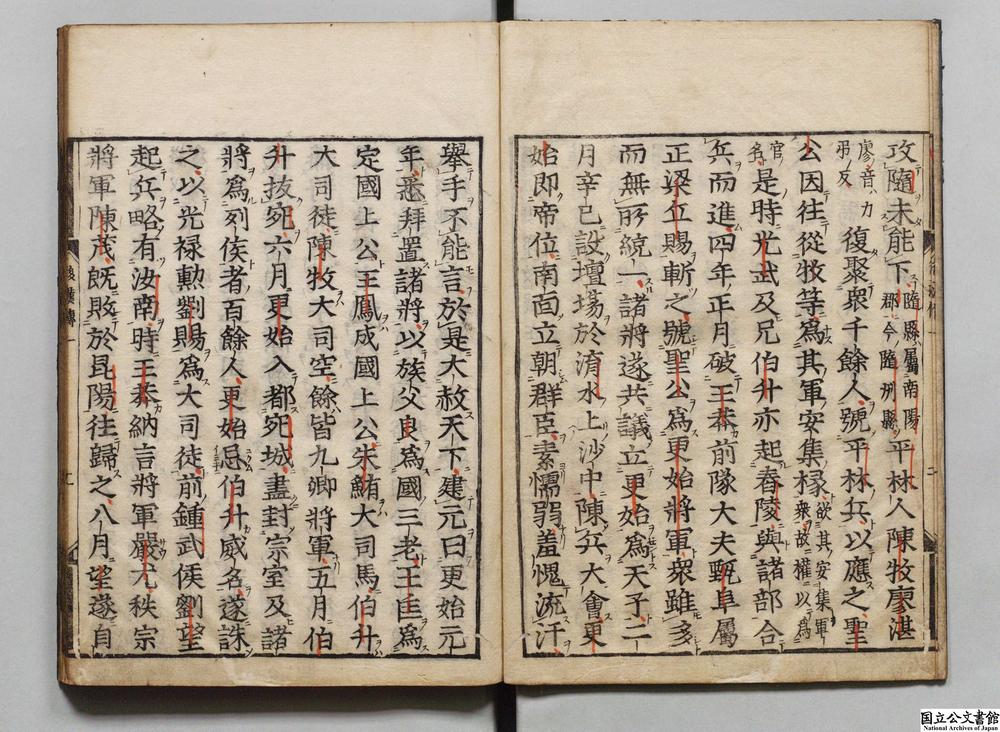 攻隨未能下隨縣屬南陽郡今隨州縣平林人陳牧廖湛
廖音力弔反復聚衆千餘人號平林兵以應之聖
公因往從牧等爲其軍安集掾欲其安集軍衆故權以爲
官名是時光武及兄伯升亦起舂陵與諸部合
兵而進四年正月破王莽前隊大夫甄阜屬
正梁丘賜斬之號聖公爲更始將軍衆雖多
而無所統一諸將遂共議立更始爲天子二
月辛巳設壇場於淯水上沙中陳兵大會更
始即帝位南面立朝群臣素懦弱羞愧流汗
舉手不能言於是大赦天下建元曰更始元
年悉拜置諸將以族父良爲國三老王匡爲
定國上公王鳳成國上公朱鮪大司馬伯升
大司徒陳牧大司空餘皆九卿將軍五月伯
升拔宛六月更始入都宛城盡封宗室及諸
將爲列侯者百餘人更始忌伯升威名遂誅
之以光禄勲劉賜爲大司徒前鍾武侯劉望
起兵略有汝南時王莽納言將軍嚴尤秩宗
將軍陳茂既敗於昆陽往歸之八月望遂自
後漢傳一
国立公文書館
National Archives of Japan